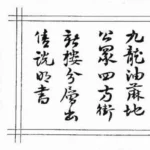 九龍油蔴地
公眾四方街
新樓分層出
售說明書